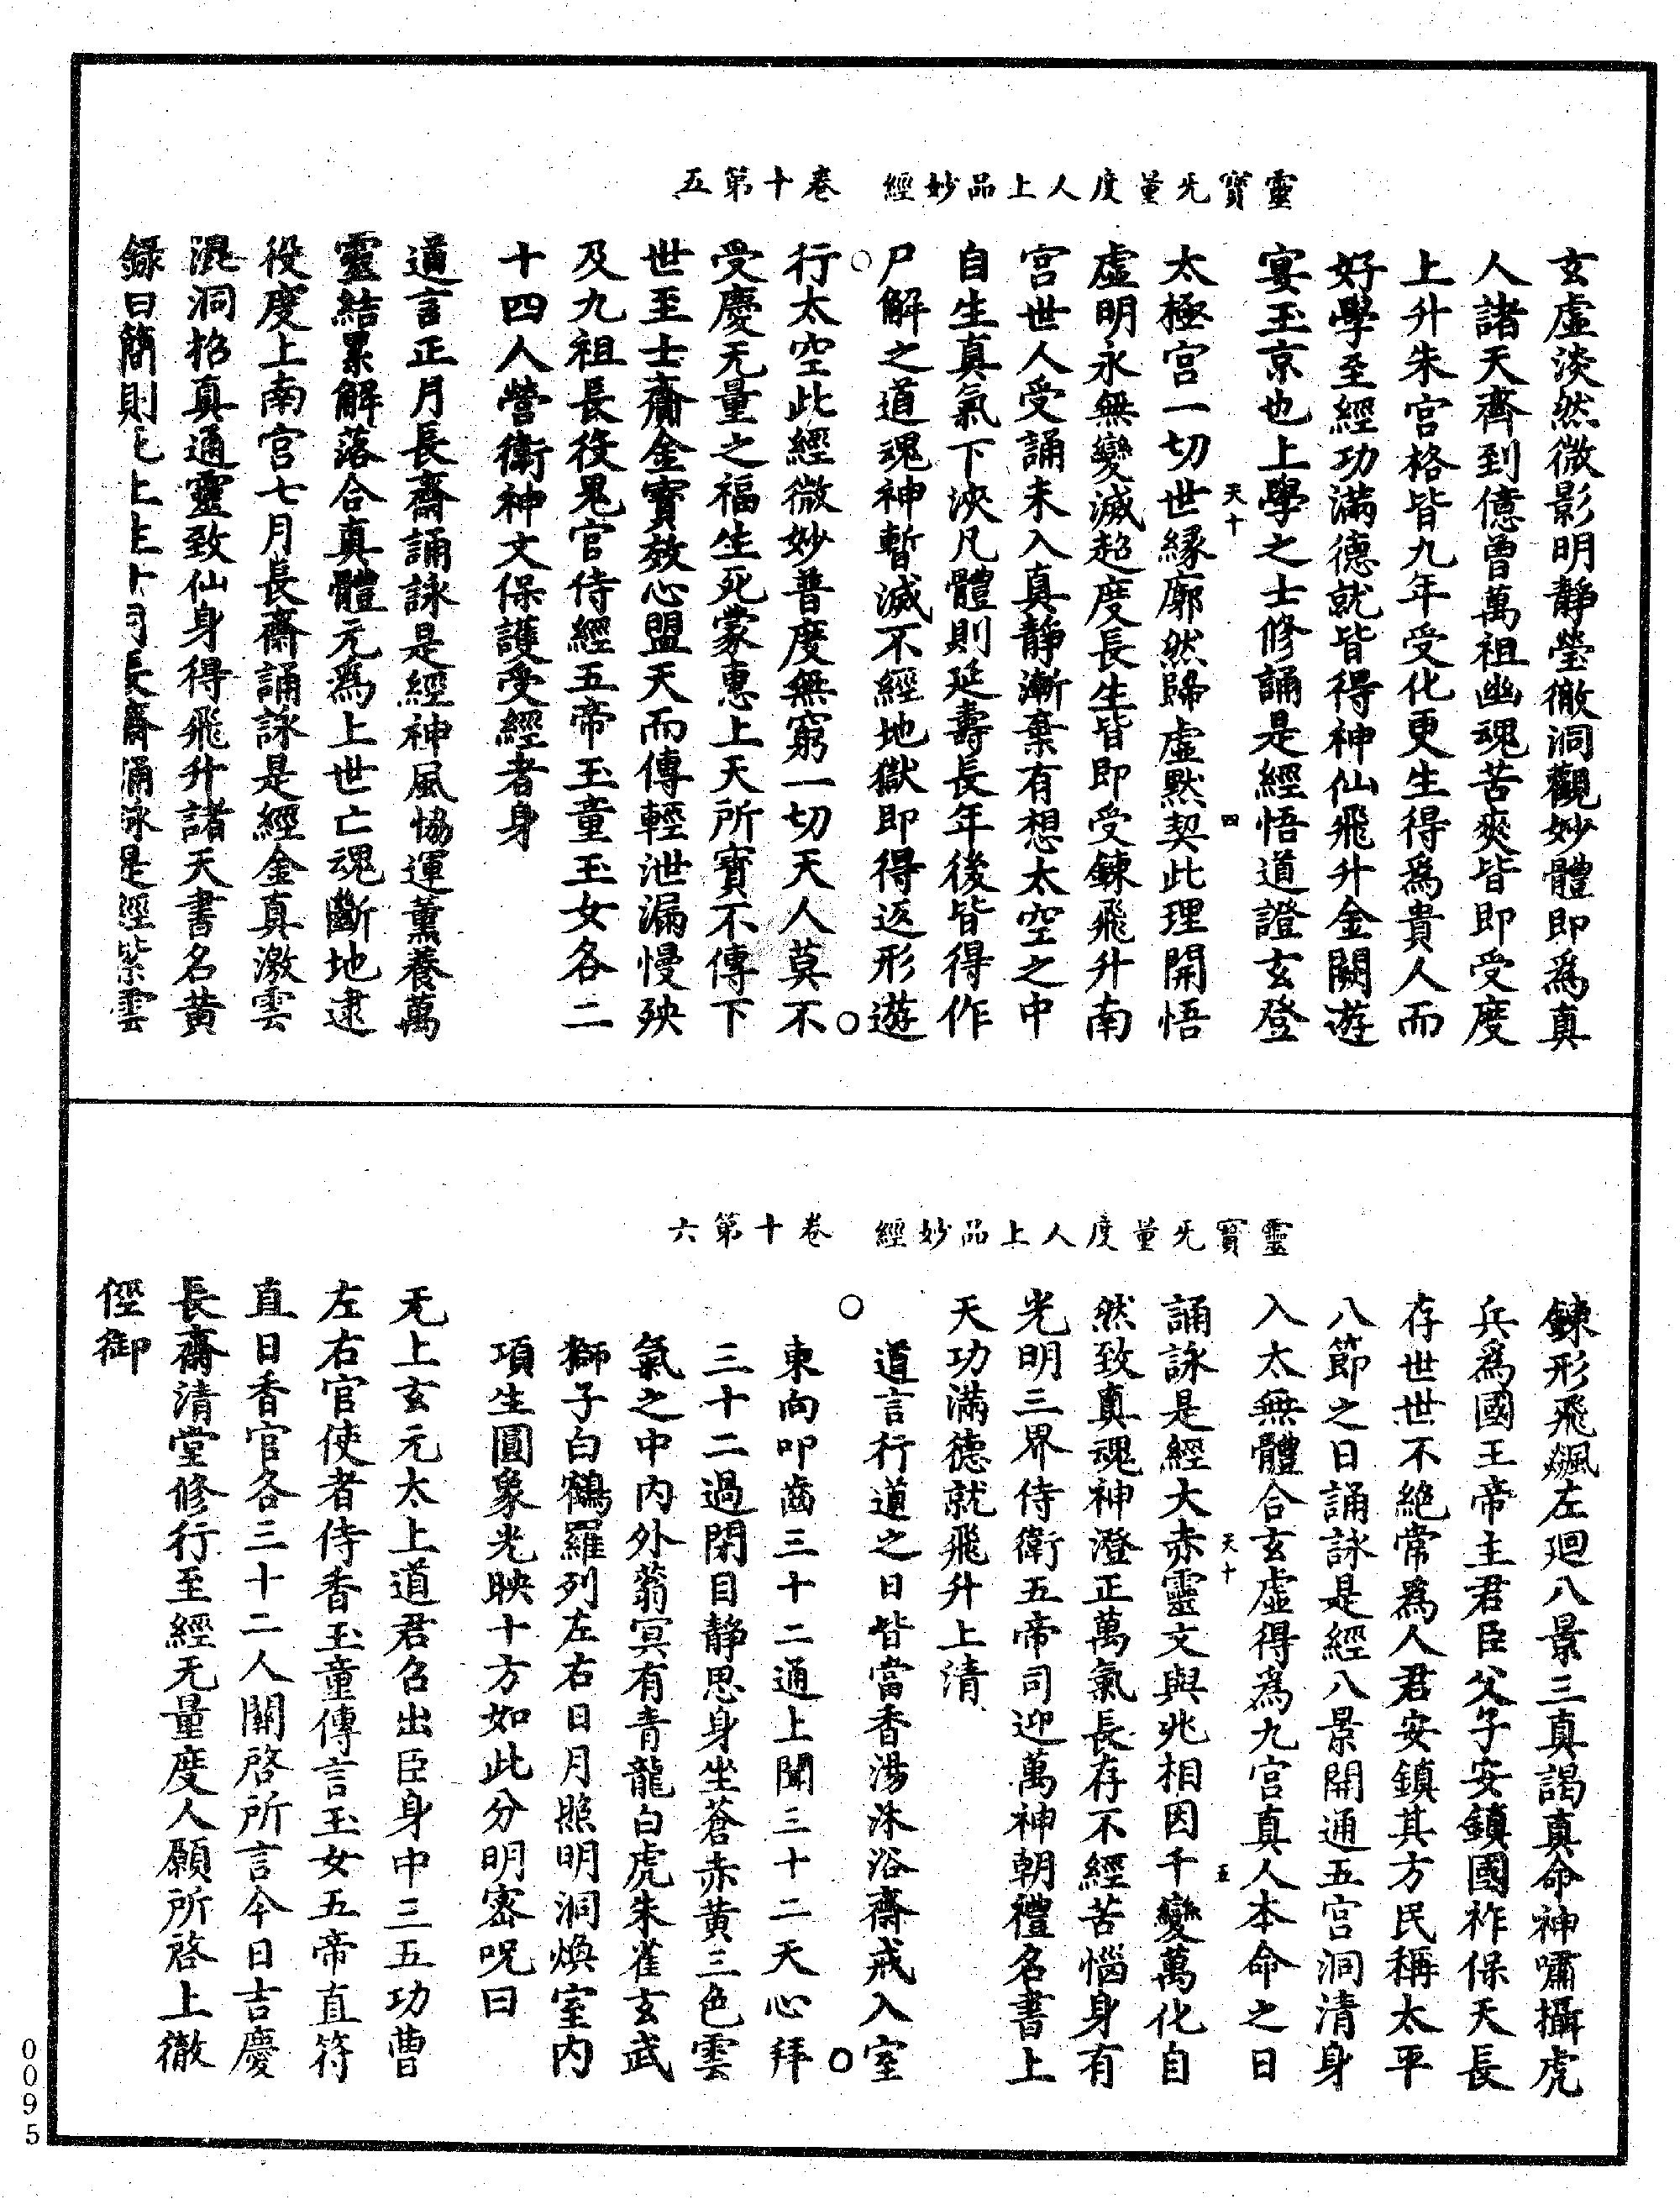 靈寶无量度人上品妙經　卷十第五
玄虛淡然微影明靜瑩徹洞觀妙體即爲真
人諸天齊到億曾萬祖幽魂苦爽皆即受度
上升朱宮格皆九年受化更生得爲貴人而
好學至經功滿德就皆得神仙飛升金闕遊
宴玉京也上學之士修誦是經悟道證玄登
天十　四
太極宮一切世緣廓然歸虛默契此理開悟
虛明永無變滅超度長生皆即受鍊飛升南
宮世人受誦未入真靜漸棄有想太空之中
自生真氣下泱凡體則延壽長年後皆得作
尸解之道魂神暫滅不經地獄即得返形遊
行太空此經微妙普度無窮一切天人莫不
受慶无量之福生死蒙惠上天所寶不傳下
世至士齎金寶效心盟天而傳輕泄漏慢殃
及九祖長役鬼官侍經五帝玉童玉女各二
十四人營衛神文保護受經者身
道言正月長齋誦詠是經神風協運薰養萬
靈結累解落合真體元爲上世亡魂斷地逮
役度上南宮七月長齋誦詠是經金真激雲
混洞招真通靈致仙身得飛升諸天書名黃
錄白簡則　上生十月長齋誦詠是經紫雲
靈寶无量度人上品妙經　卷十第六
鍊形飛飆左廻八景三真謁真命神嘯攝虎
兵爲國王帝主君臣父子安鎮國祚保天長
存世世不絕常爲人君安鎮其方民稱太平
八節之日誦詠是經八景開通五宮洞清身
入太無體合玄虛得爲九宮真人本命之日
天十　五
誦詠是經大赤靈文與兆相因千變萬化自
然致真魂神澄正萬氣長存不經苦惱身有
光明三界侍衛五帝司迎萬神朝禮名書上
天功滿德就飛升上清
道言行道之日皆當香湯沐浴齋戒入室
東向叩齒三十二通上聞三十二天心拜
三十二過閉目靜思身坐蒼赤黃三色雲
氣之中內外蓊冥有青龍白虎朱雀玄武
獅子白鶴羅列左右日月照明洞煥室內
項生圓象光映十方如此分明密呪曰
无上玄元太上道君召出臣身中三五功曹
左右官使者侍香玉童傳言玉女五帝直符
直日香官各三十二人關啓所言今日吉慶
長齋清堂修行至經无量度人願所啓上徹
徑御
0095